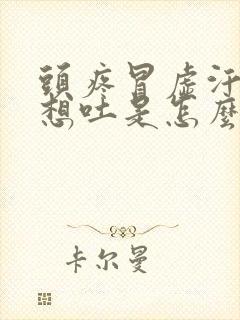 頭疼冒虛汗
想吐是怎麼
卡尔曼